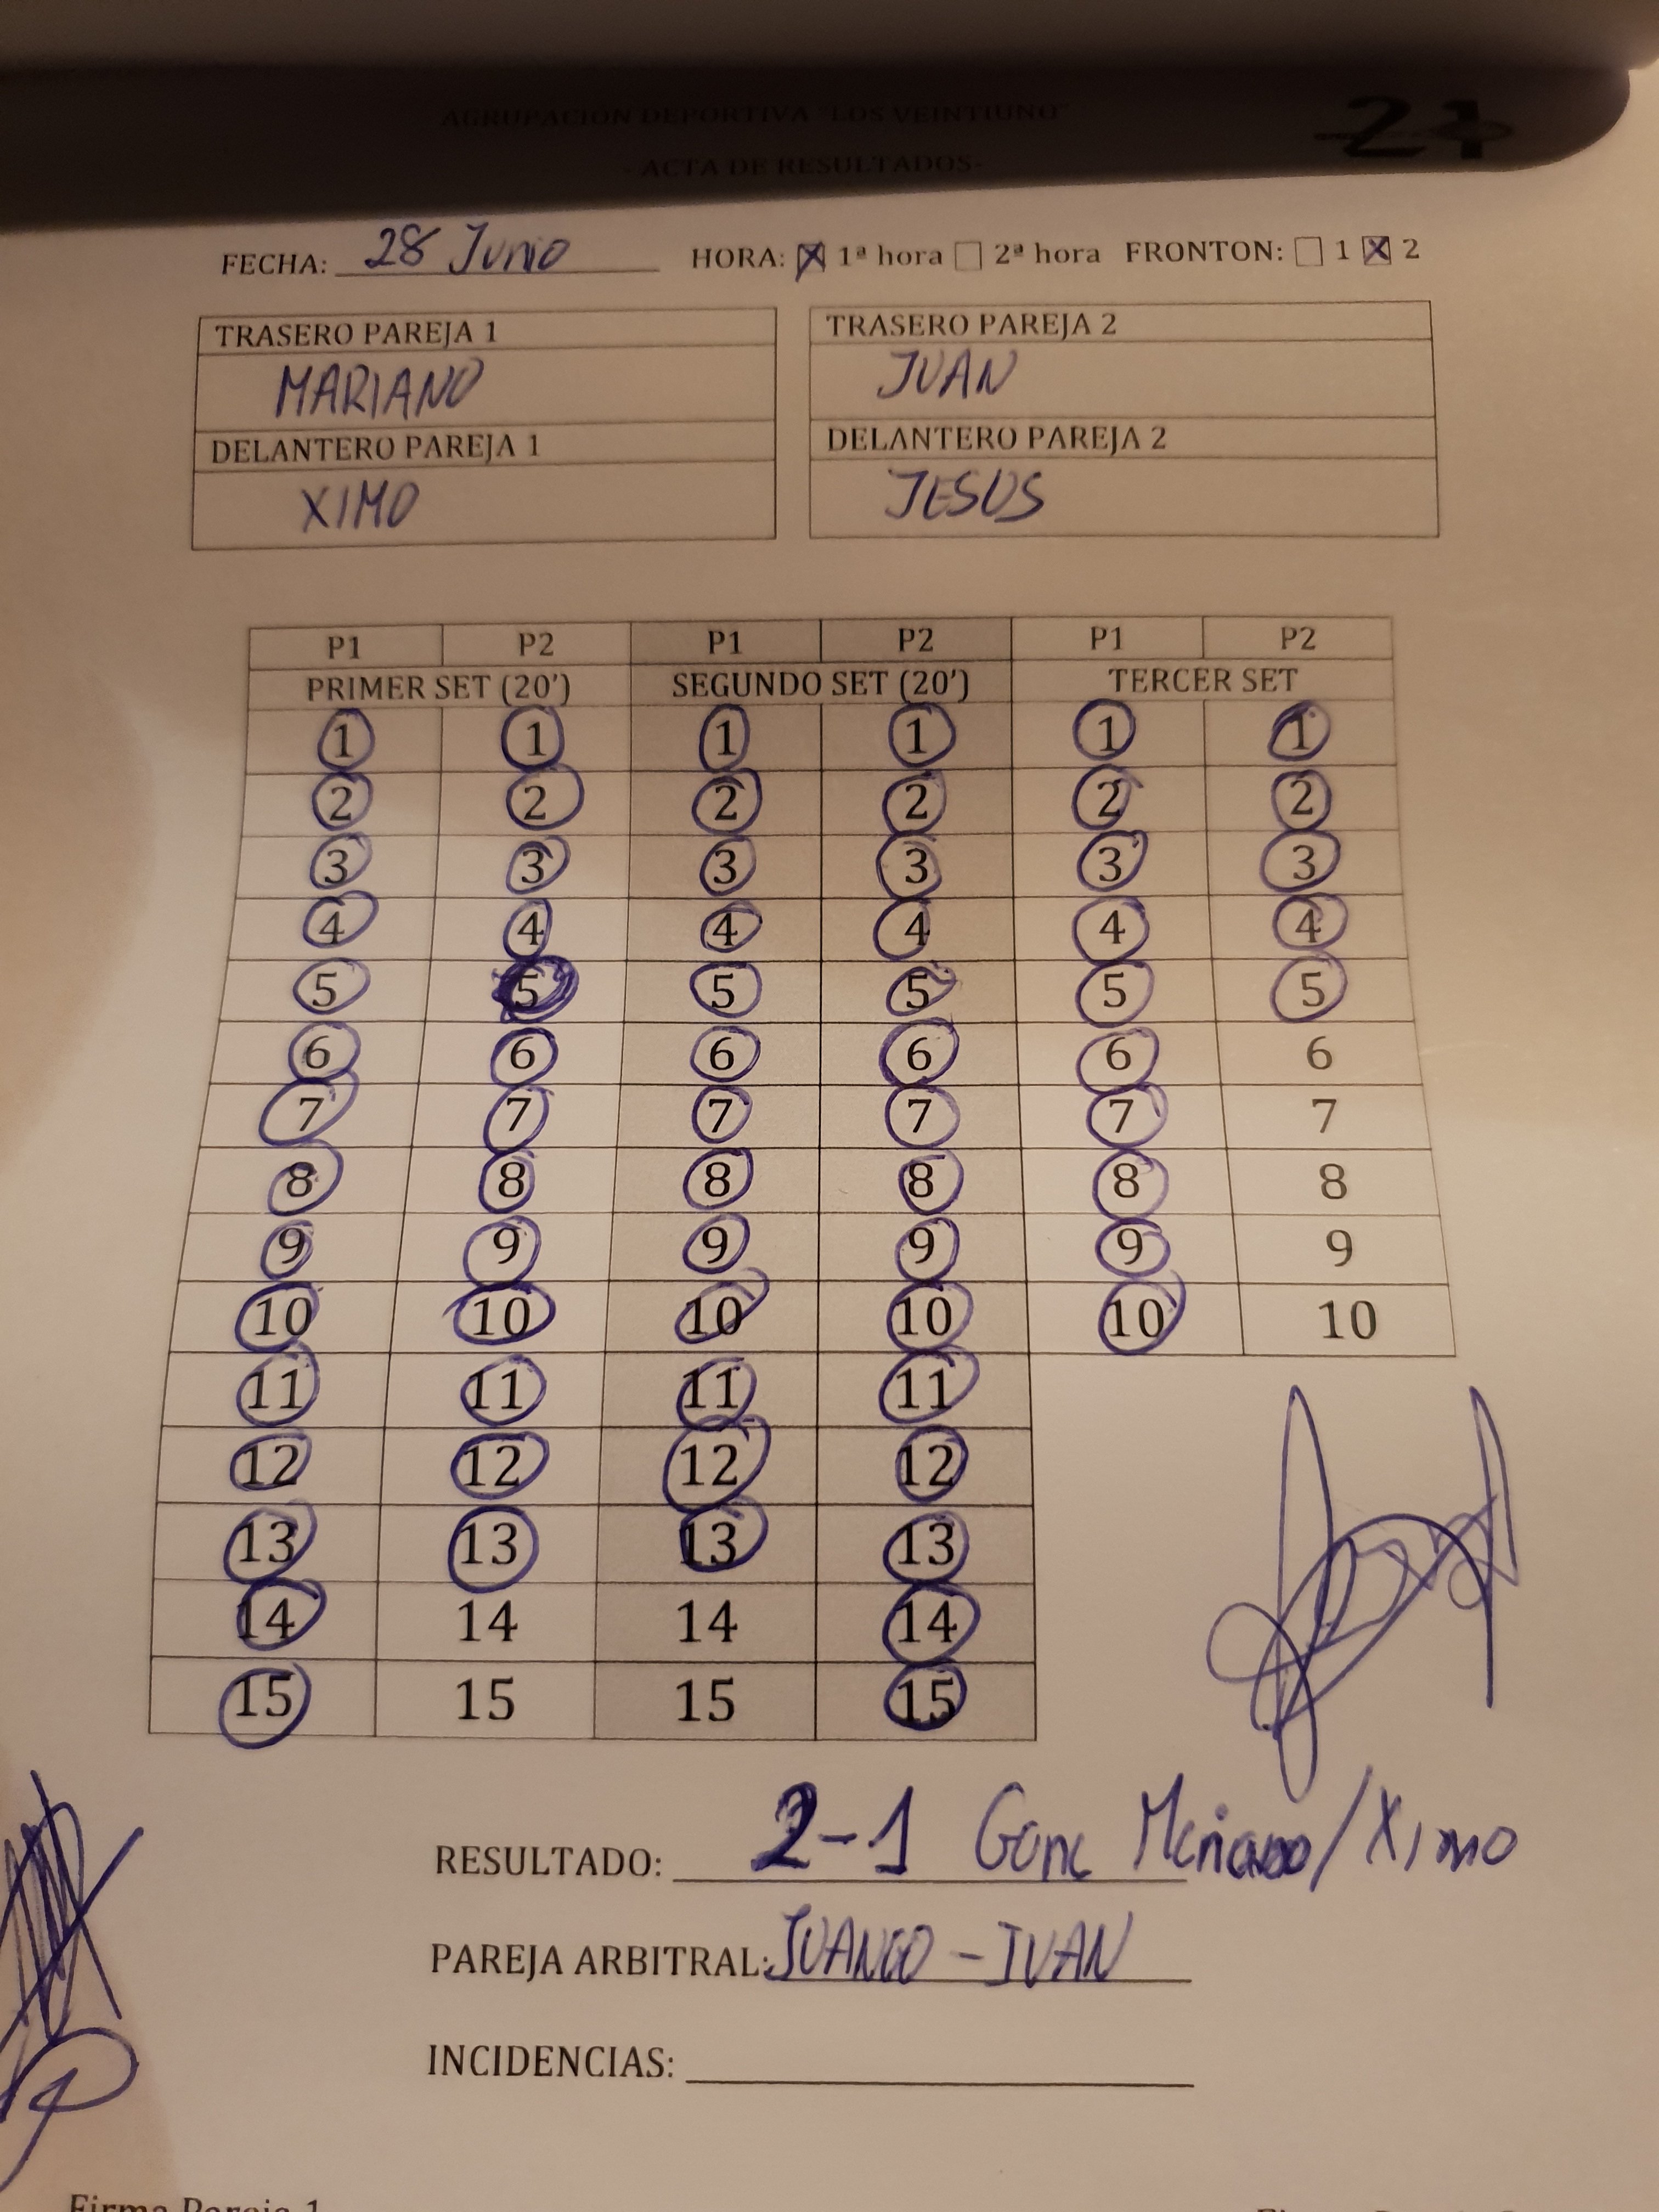 AGRUPACIÓN DEPORTIVA "LOS VEINTIUNO"
21
- ACTA DE RESULTADOS-
FECHA: 28 Junio HORA: X 1ª hora 2ª hora FRONTON: 1 X 2
TRASERO PAREJA 1 TRASERO PAREJA 2
MARIANO JUAN
DELANTERO PAREJA 1 DELANTERO PAREJA 2
XIMO JESUS
P1 P2 P1 P2 P1 P2
PRIMER SET (20') SEGUNDO SET (20') TERCER SET
1 1 1 1 1 1
2 2 2 2 2 2
3 3 3 3 3 3
4 4 4 4 4 4
5 5 5 5 5 5
6 6 6 6 6 6
7 7 7 7 7 7
8 8 8 8 8 8
9 9 9 9 9 9
10 10 10 10 10 10
11 11 11 11
12 12 12 12
13 13 13 13
14 14 14 14
15 15 15 15
RESULTADO: 2-1 /XIMO
PAREJA ARBITRAL: - IVAN
INCIDENCIAS:
Firma Pareja 1